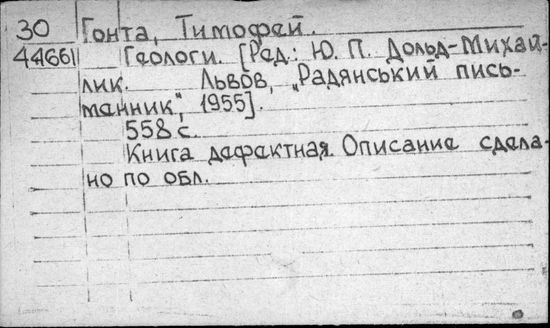 30 Гонта, Тимофей.
44661 Геологи. [Ред.: Ю. П. Дольд-Михай-
лик. Львов, „Радянський пись-
манник", 1955].
558 с.
Книга дефектная. Описание сдела-
но по обл.